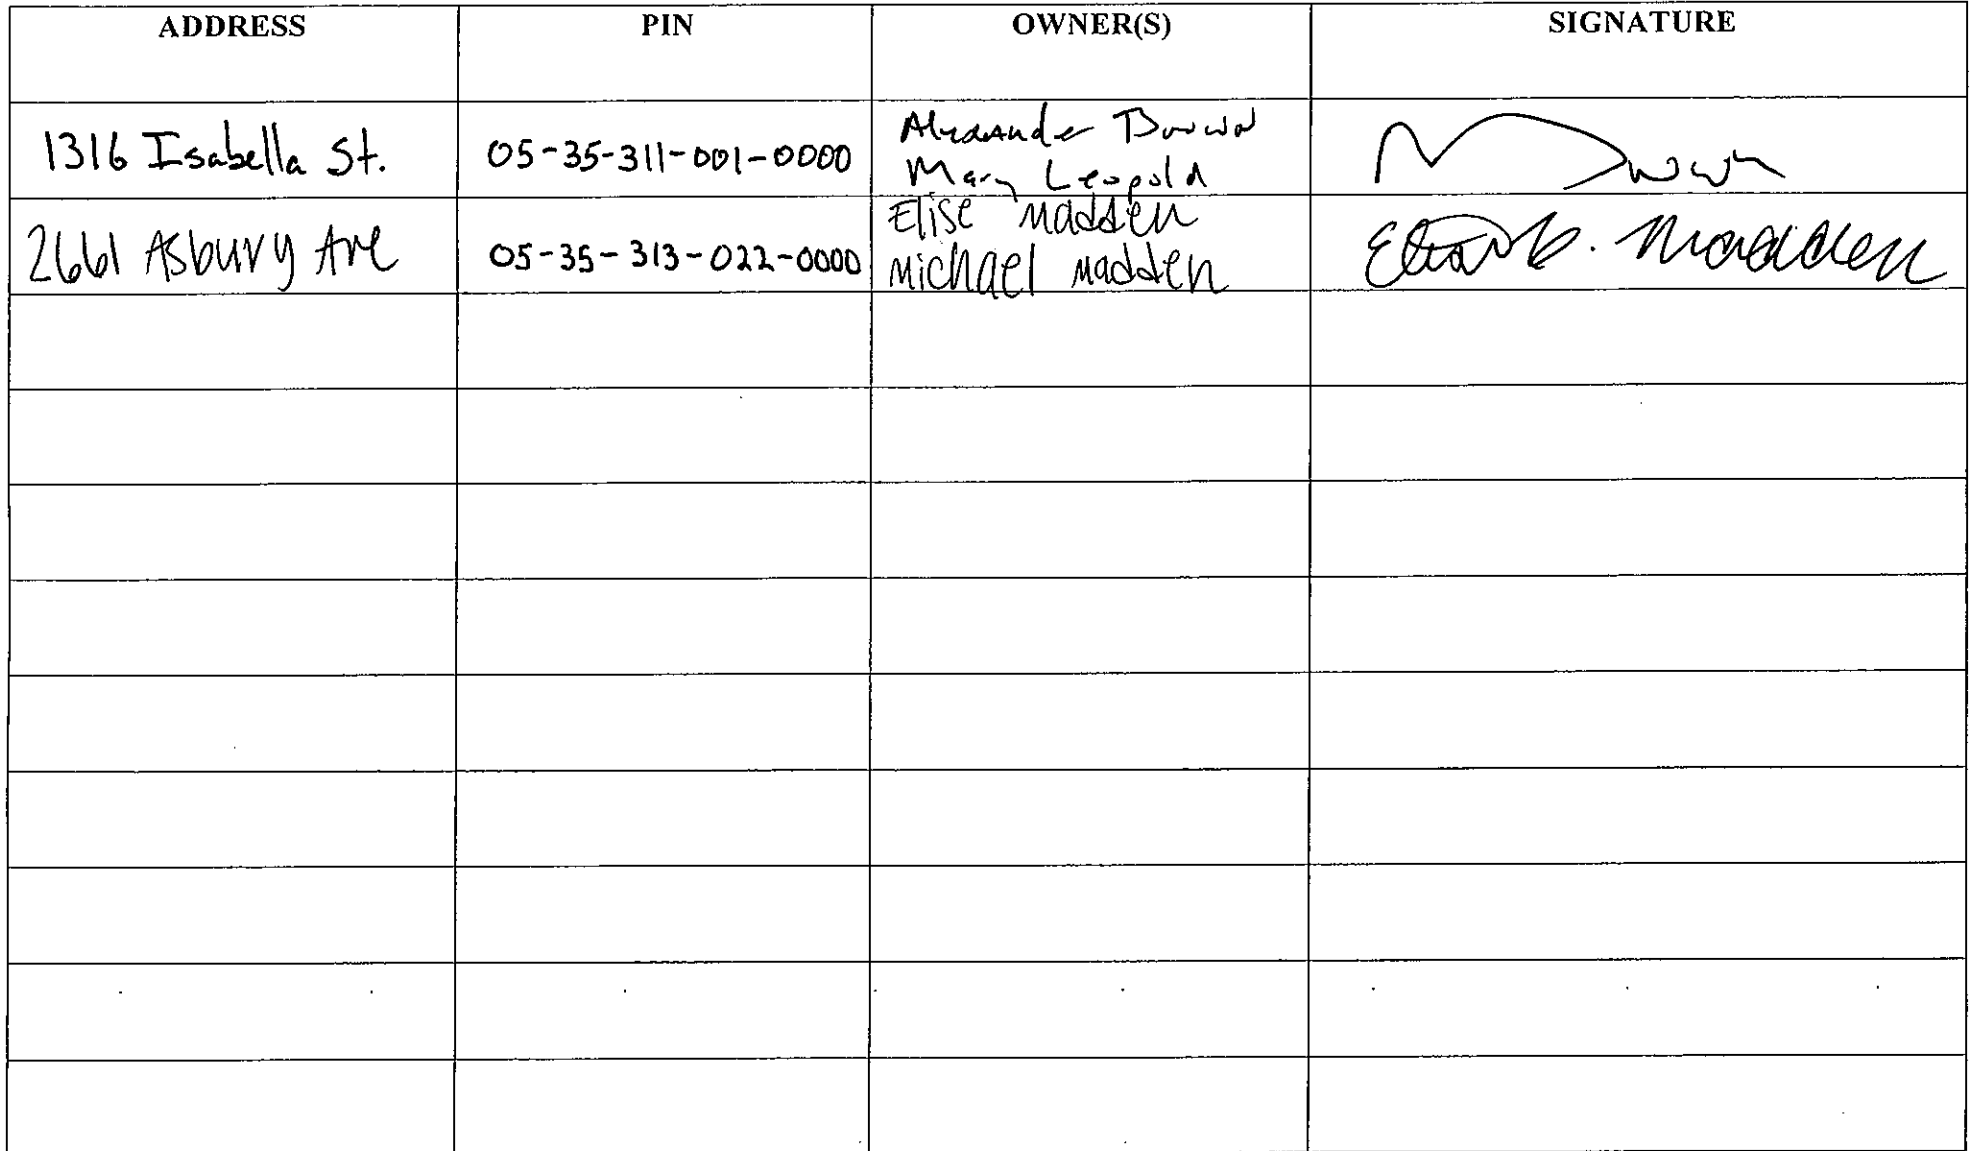 ADDRESS PIN OWNER(S) SIGNATURE
1316 Isabella St. 05-35-311-001-0000 Alexander Brown
Mary Leopold
2661 Asbury Ave 05-35-313-022-0000 Elise Madden
Michael Madden
Madden